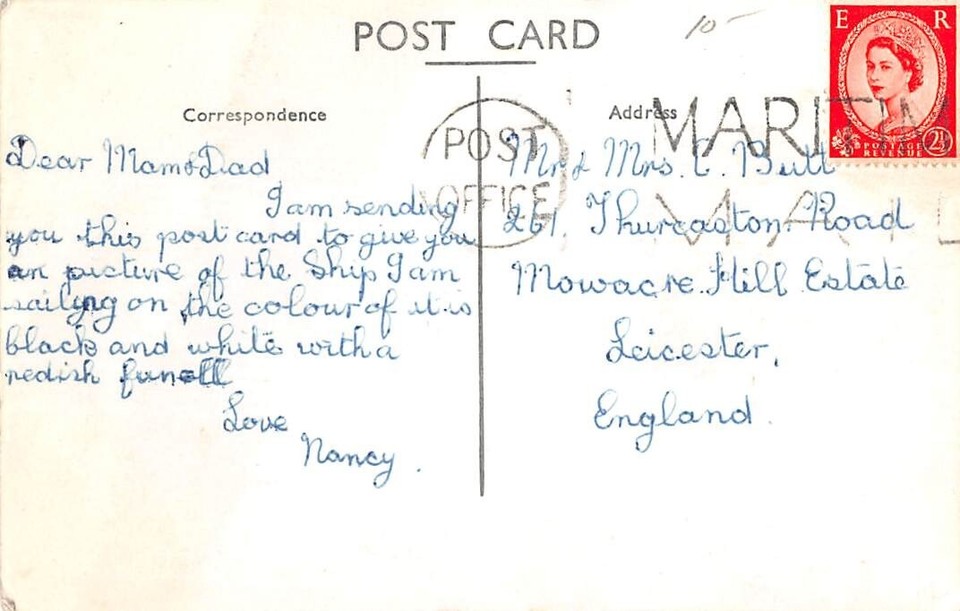 POST CARD
10-
E R
POSTAGE
REVENUE
2½
Correspondence
Dear Mam & Dad
I am sending
you this post card to give you
an picture of the Ship I am
sailyng on the colour of it is
black and white with a
redish funell
Love
Nancy.
Address
POST
OFFICE
MARITIM
MAIL
Mr & Mrs. C. Butt
261. Thurcaston Road
Mowacre Hill Estate
Leicester,
England.